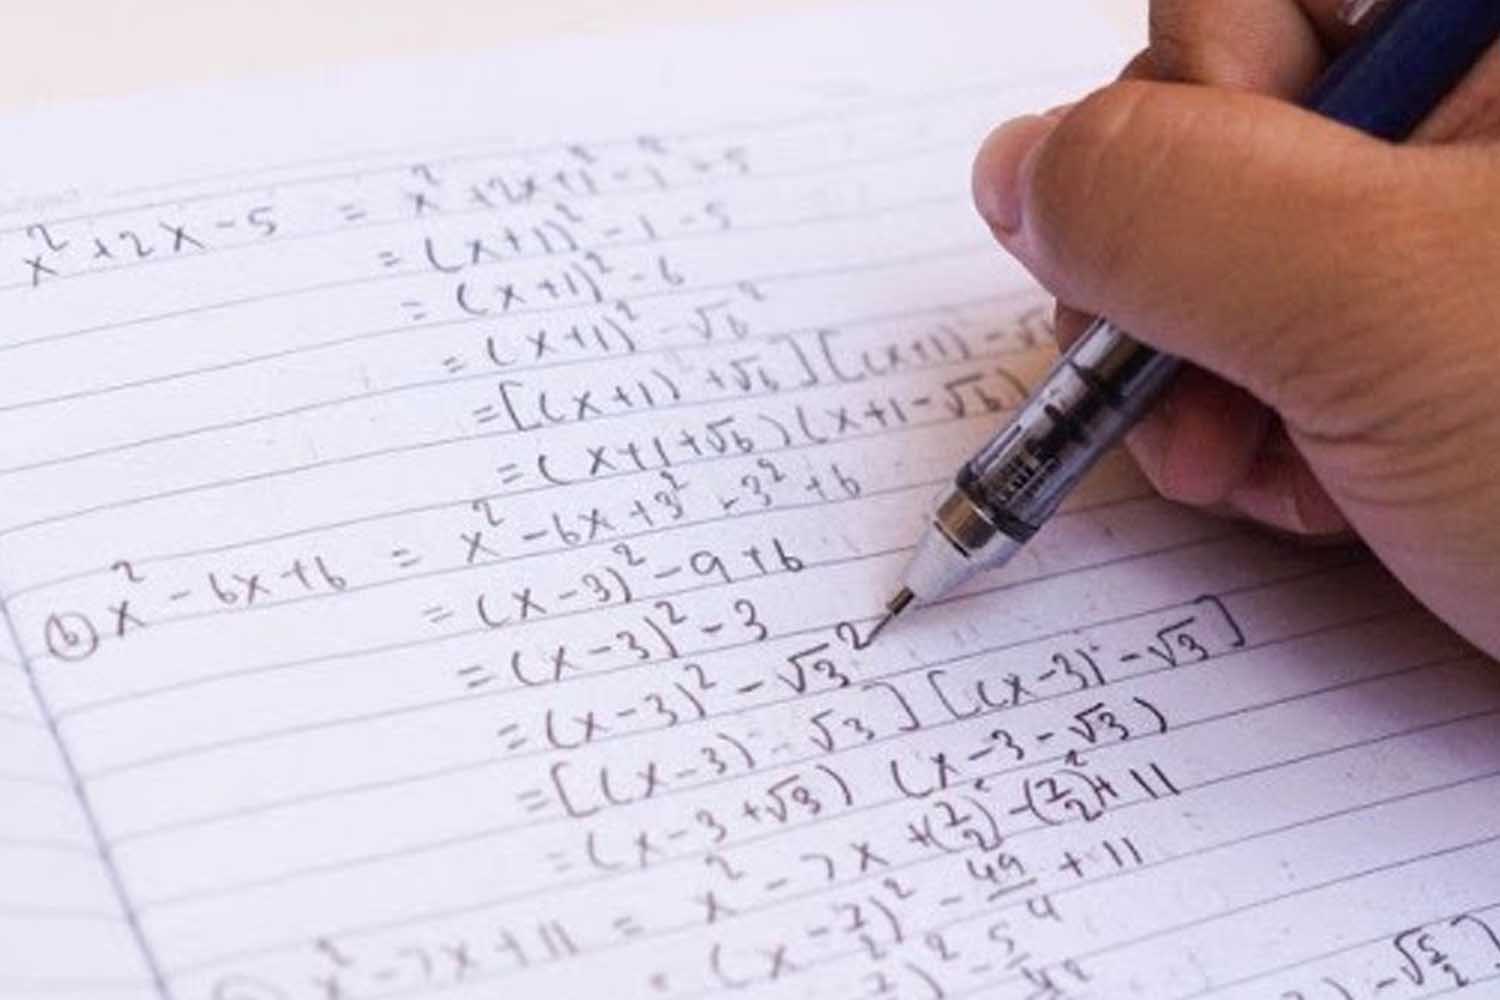 x² + 2x - 5 = x² + 2x + 1² - 1² - 5
= (x+1)² - 1 - 5
= (x+1)² - 6
= (x+1)² - √6²
= [(x+1) + √6] [(x+1) - √
= (x+1+√6)(x+1-√6)
(b) x² - 6x + 6 = x² - 6x + 3² - 3² + 6
= (x-3)² - 9 + 6
= (x-3)² - 3
= (x-3)² - √3²
= [(x-3) - √3] [(x-3) - √3]
= (x-3+√3) (x-3-√3)
x² - 7x + 11 = x² - 7x + (7/2)² - (7/2)² + 11
= (x - 7/2)² - 49/4 + 11
)² - 5/4
) - √5/2]